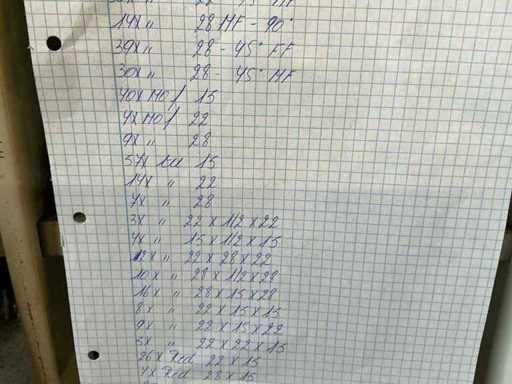 14x " 28 MF - 90°
39x " 28 - 45° FF
30x " 28 - 45° MF
40x MOf 15
4x MOf 22
9x " 28
57x 15
14x " 22
7x " 28
3x " 22 x 1/2 x 22
4x " 15 x 1/2 x 15
12x " 22 x 28 x 22
10x " 28 x 1/2 x 28
16x " 28 x 15 x 28
8x " 22 x 15 x 15
9x " 22 x 15 x 22
5x " 22 x 22 x 15
26x Red 22 x 15
4x Red 28 x 15